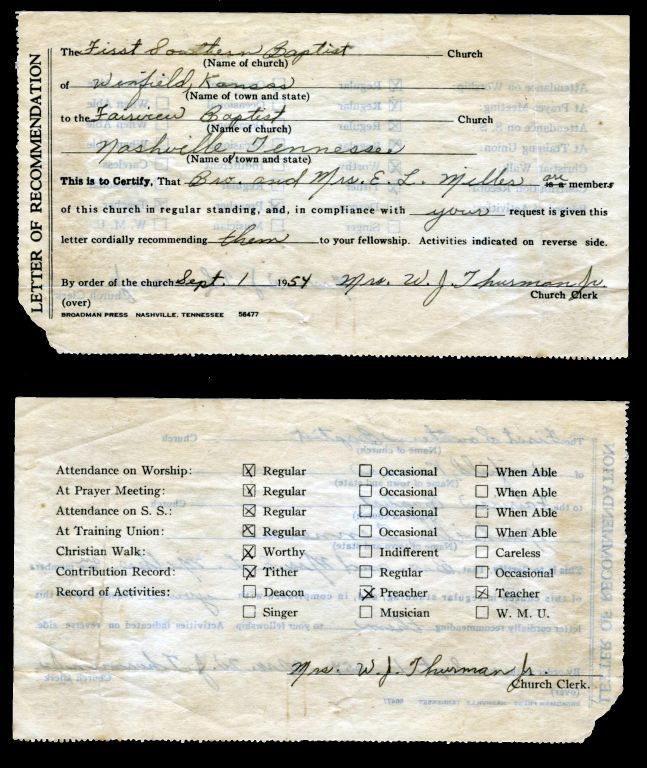 LETTER OF RECOMMENDATION
The First Southern Baptist Church
(Name of church)
of Winfield, Kansas
(Name of town and state)
to the Fairview Baptist Church
(Name of church)
Nashville, Tennessee
(Name of town and state)
This is to Certify, That Bro and Mrs. E. L. Miller are is a members
of this church in regular standing, and, in compliance with your request is given this
letter cordially recommending them to your fellowship. Activities indicated on reverse side.
By order of the church Sept. 1 1954 Mrs. W. J. Thurman Jr.
(over) Church Clerk
BROADMAN PRESS NASHVILLE, TENNESSEE 56477
Attendance on Worship: X Regular Occasional When Able
At Prayer Meeting: X Regular Occasional When Able
Attendance on S. S.: X Regular Occasional When Able
At Training Union: X Regular Occasional When Able
Christian Walk: X Worthy Indifferent Careless
Contribution Record: X Tither Regular Occasional
Record of Activities: Deacon X Preacher X Teacher
Singer Musician W. M. U.
Mrs. W. J. Thurman Jr.
Church Clerk.